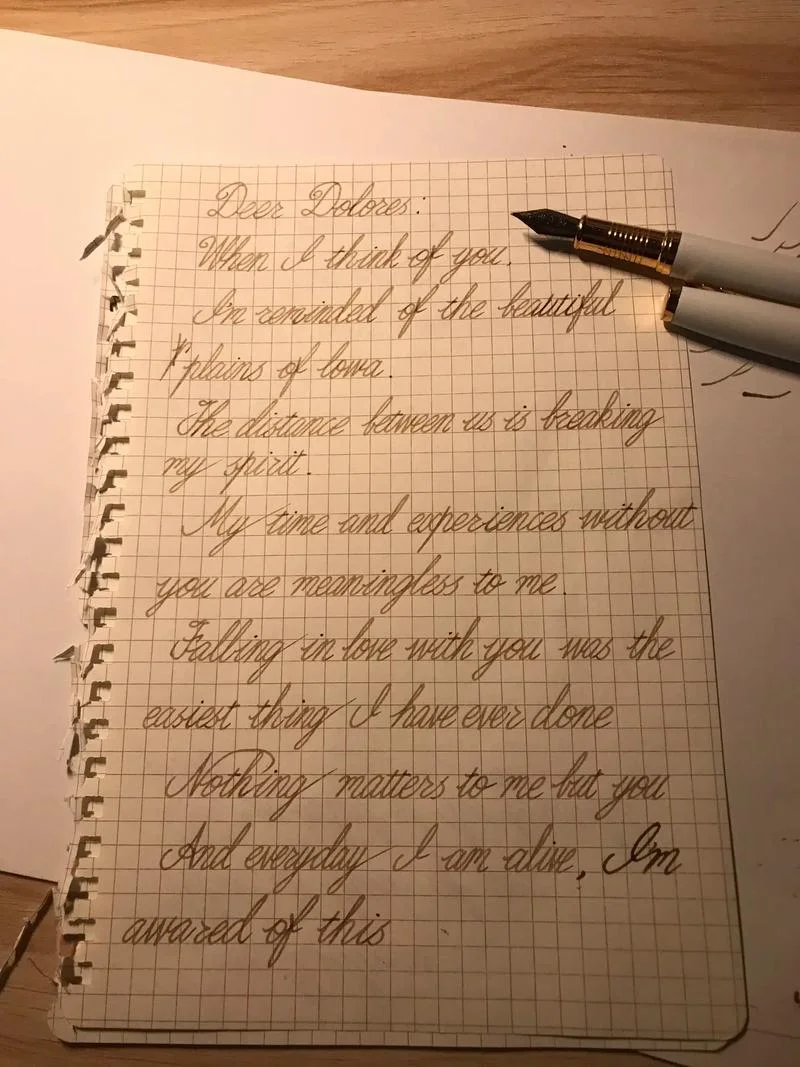 Dear Dolores:
When I think of you.
I'm reminded of the beautiful
plains of Iowa.
The distance between us is breaking
my spirit.
My time and experiences without
you are meaningless to me.
Falling in love with you was the
easiest thing I have ever done
Nothing matters to me but you
And everyday I am alive, I'm
awared of this